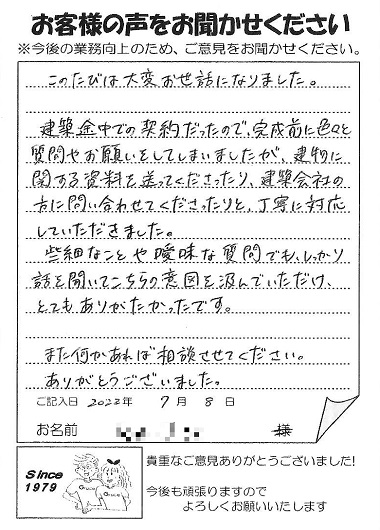 お客様の声をお聞かせください
※今後の業務向上のため、ご意見をお聞かせください。
このたびは大変お世話になりました。
建築途中での契約だったので、完成前に色々と
質問やお願いをしてしまいましたが、建物に
関する資料を送ってくださったり、建築会社の
方に問い合わせてくださったりと、丁寧に対応
していただきました。
些細なことや曖昧な質問でも、しっかり
話を聞いてこちらの意図を汲んでいただけ、
とてもありがたかったです。
また何かあれば相談させてください。
ありがとうございました。
ご記入日 2022年 7月 8日
お名前 様
Since
1979
貴重なご意見ありがとうございました!
今後も頑張りますので
よろしくお願いいたします